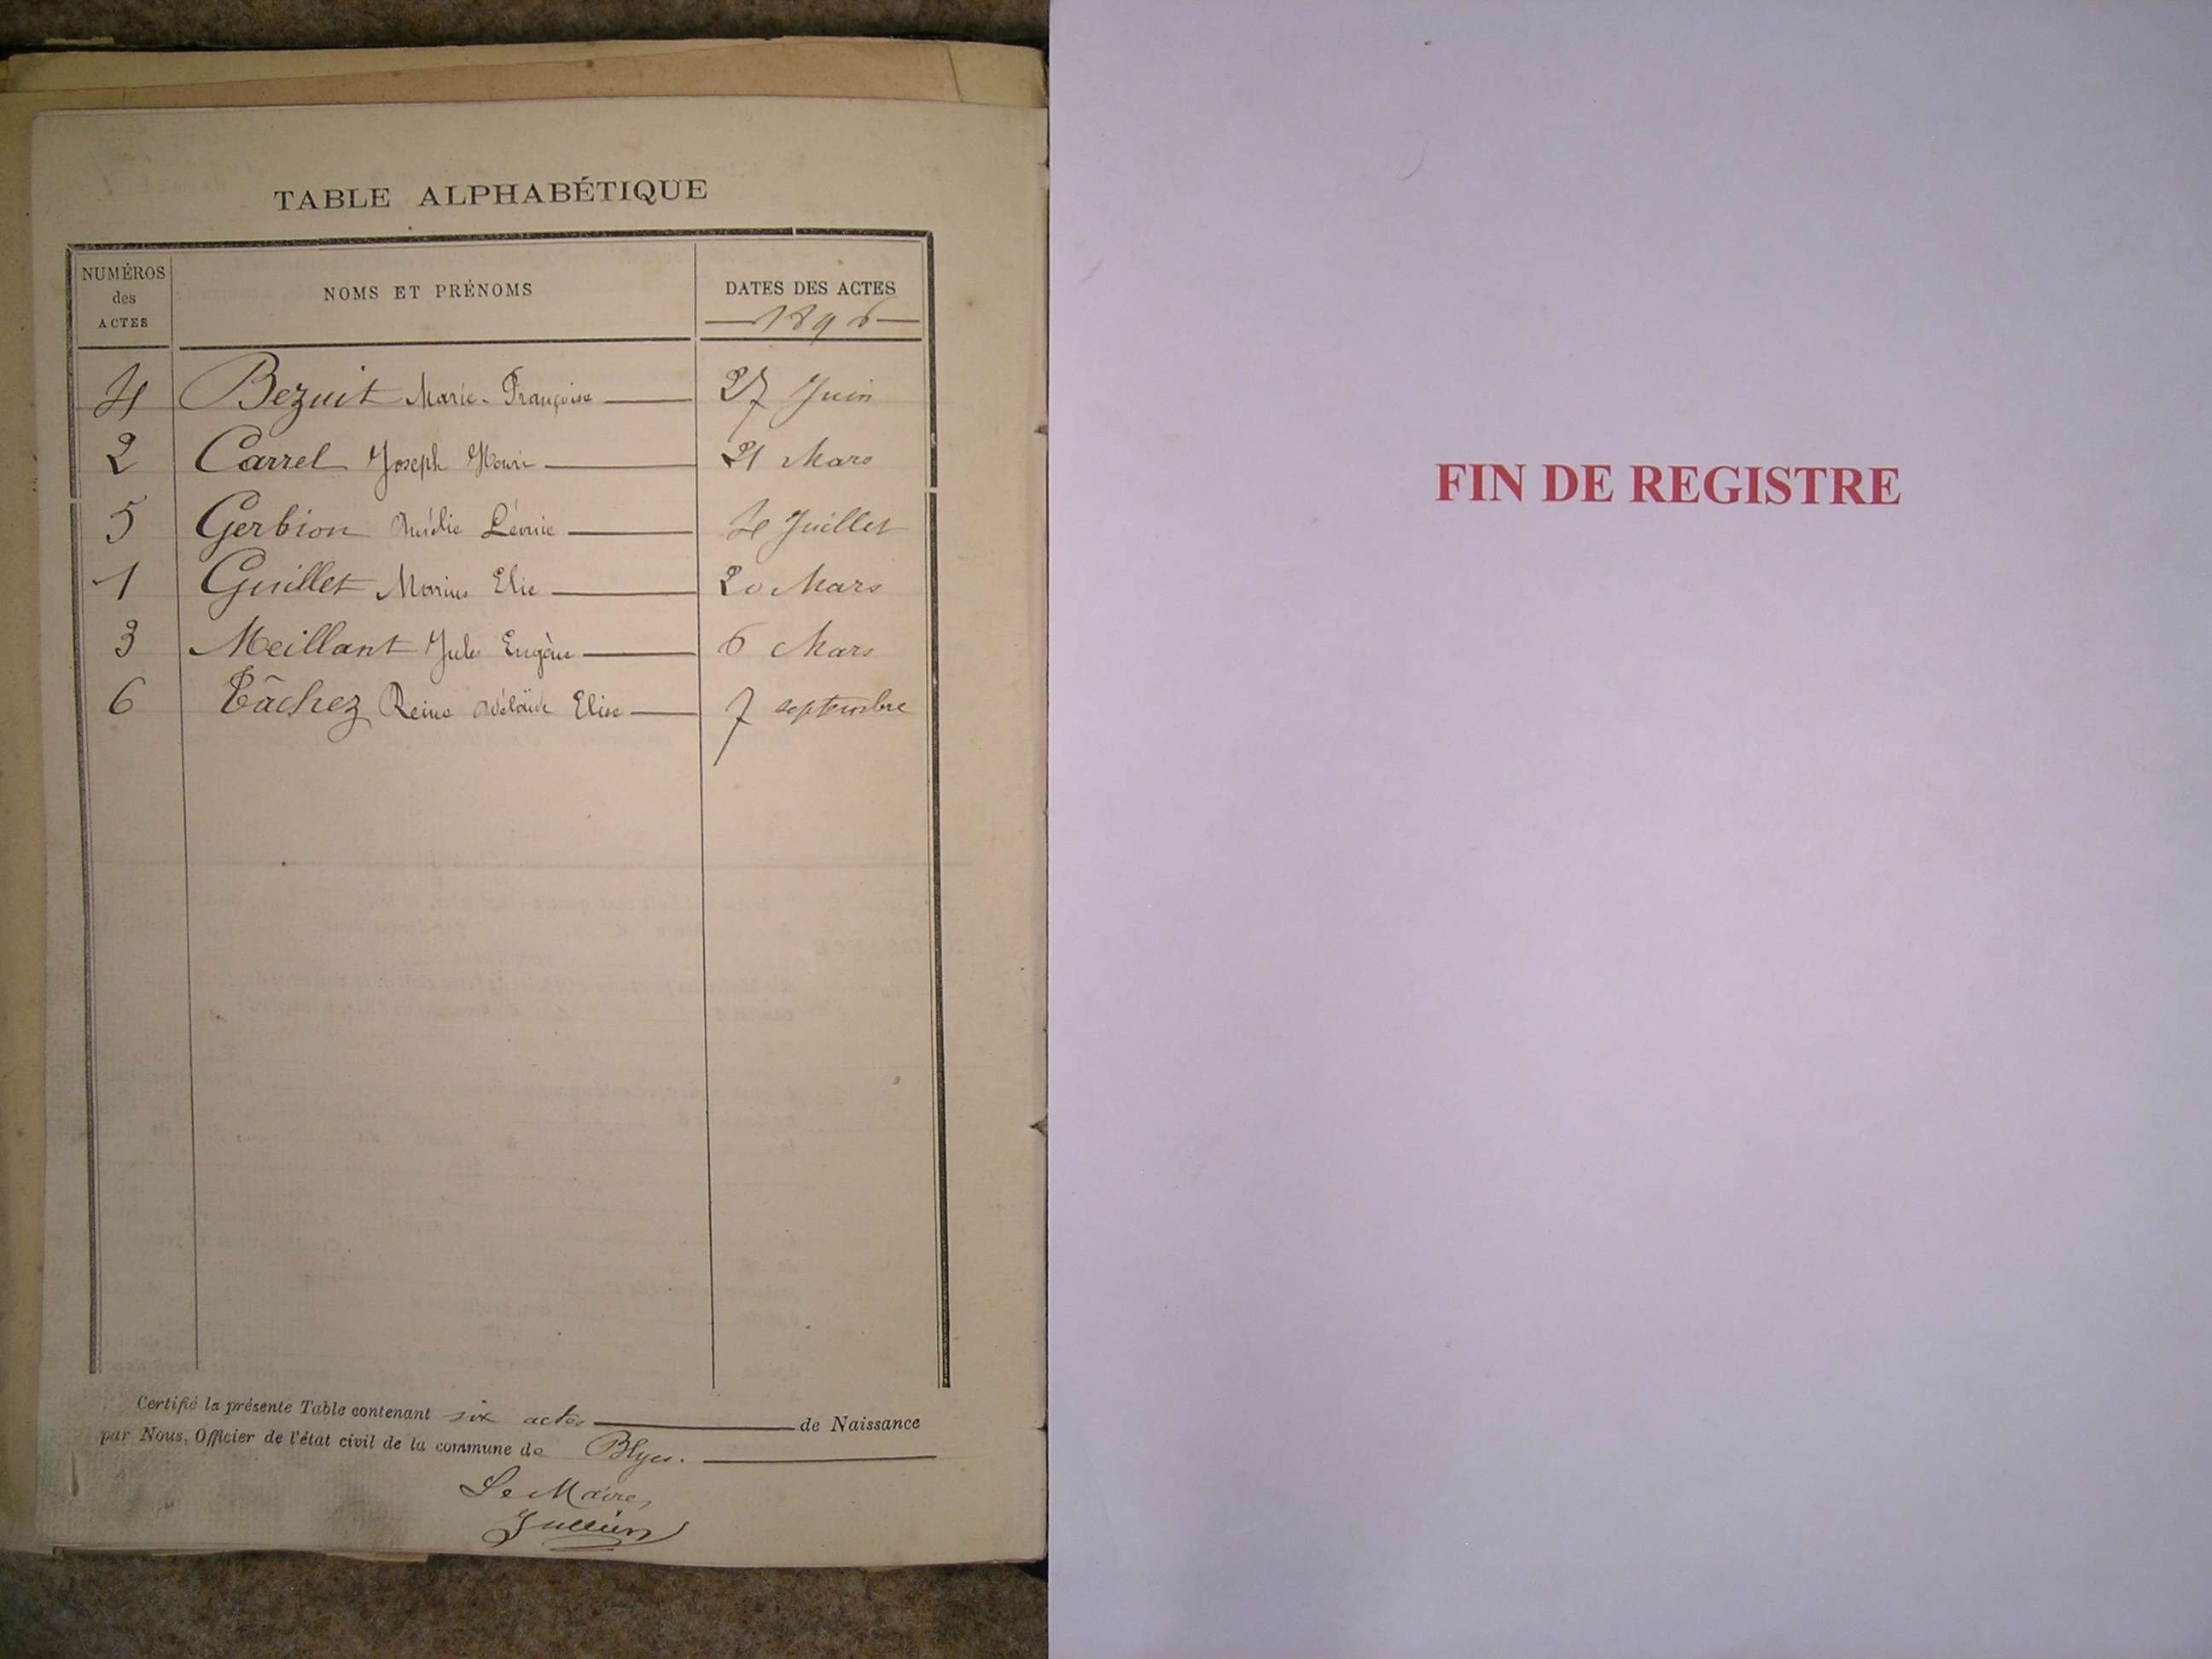 TABLE ALPHABÉTIQUE
NUMÉROS
des
ACTES
NOMS ET PRÉNOMS
DATES DES ACTES
1896
4 Bezuit Marie-Françoise 27 Juin
2 Carrel Joseph Henri 21 Mars
5 Gerbion Amélie Léonie 4 Juillet
1 Guillet Marius Elie 20 Mars
3 Meillant Jules Eugène 6 Mars
6 Tâchez Reine Adélaïde Elise 7 septembre
Certifié la présente Table contenant six actes de Naissance
par Nous, Officier de l'état civil de la commune de Blyes.
Le Maire,
Jullien
FIN DE REGISTRE